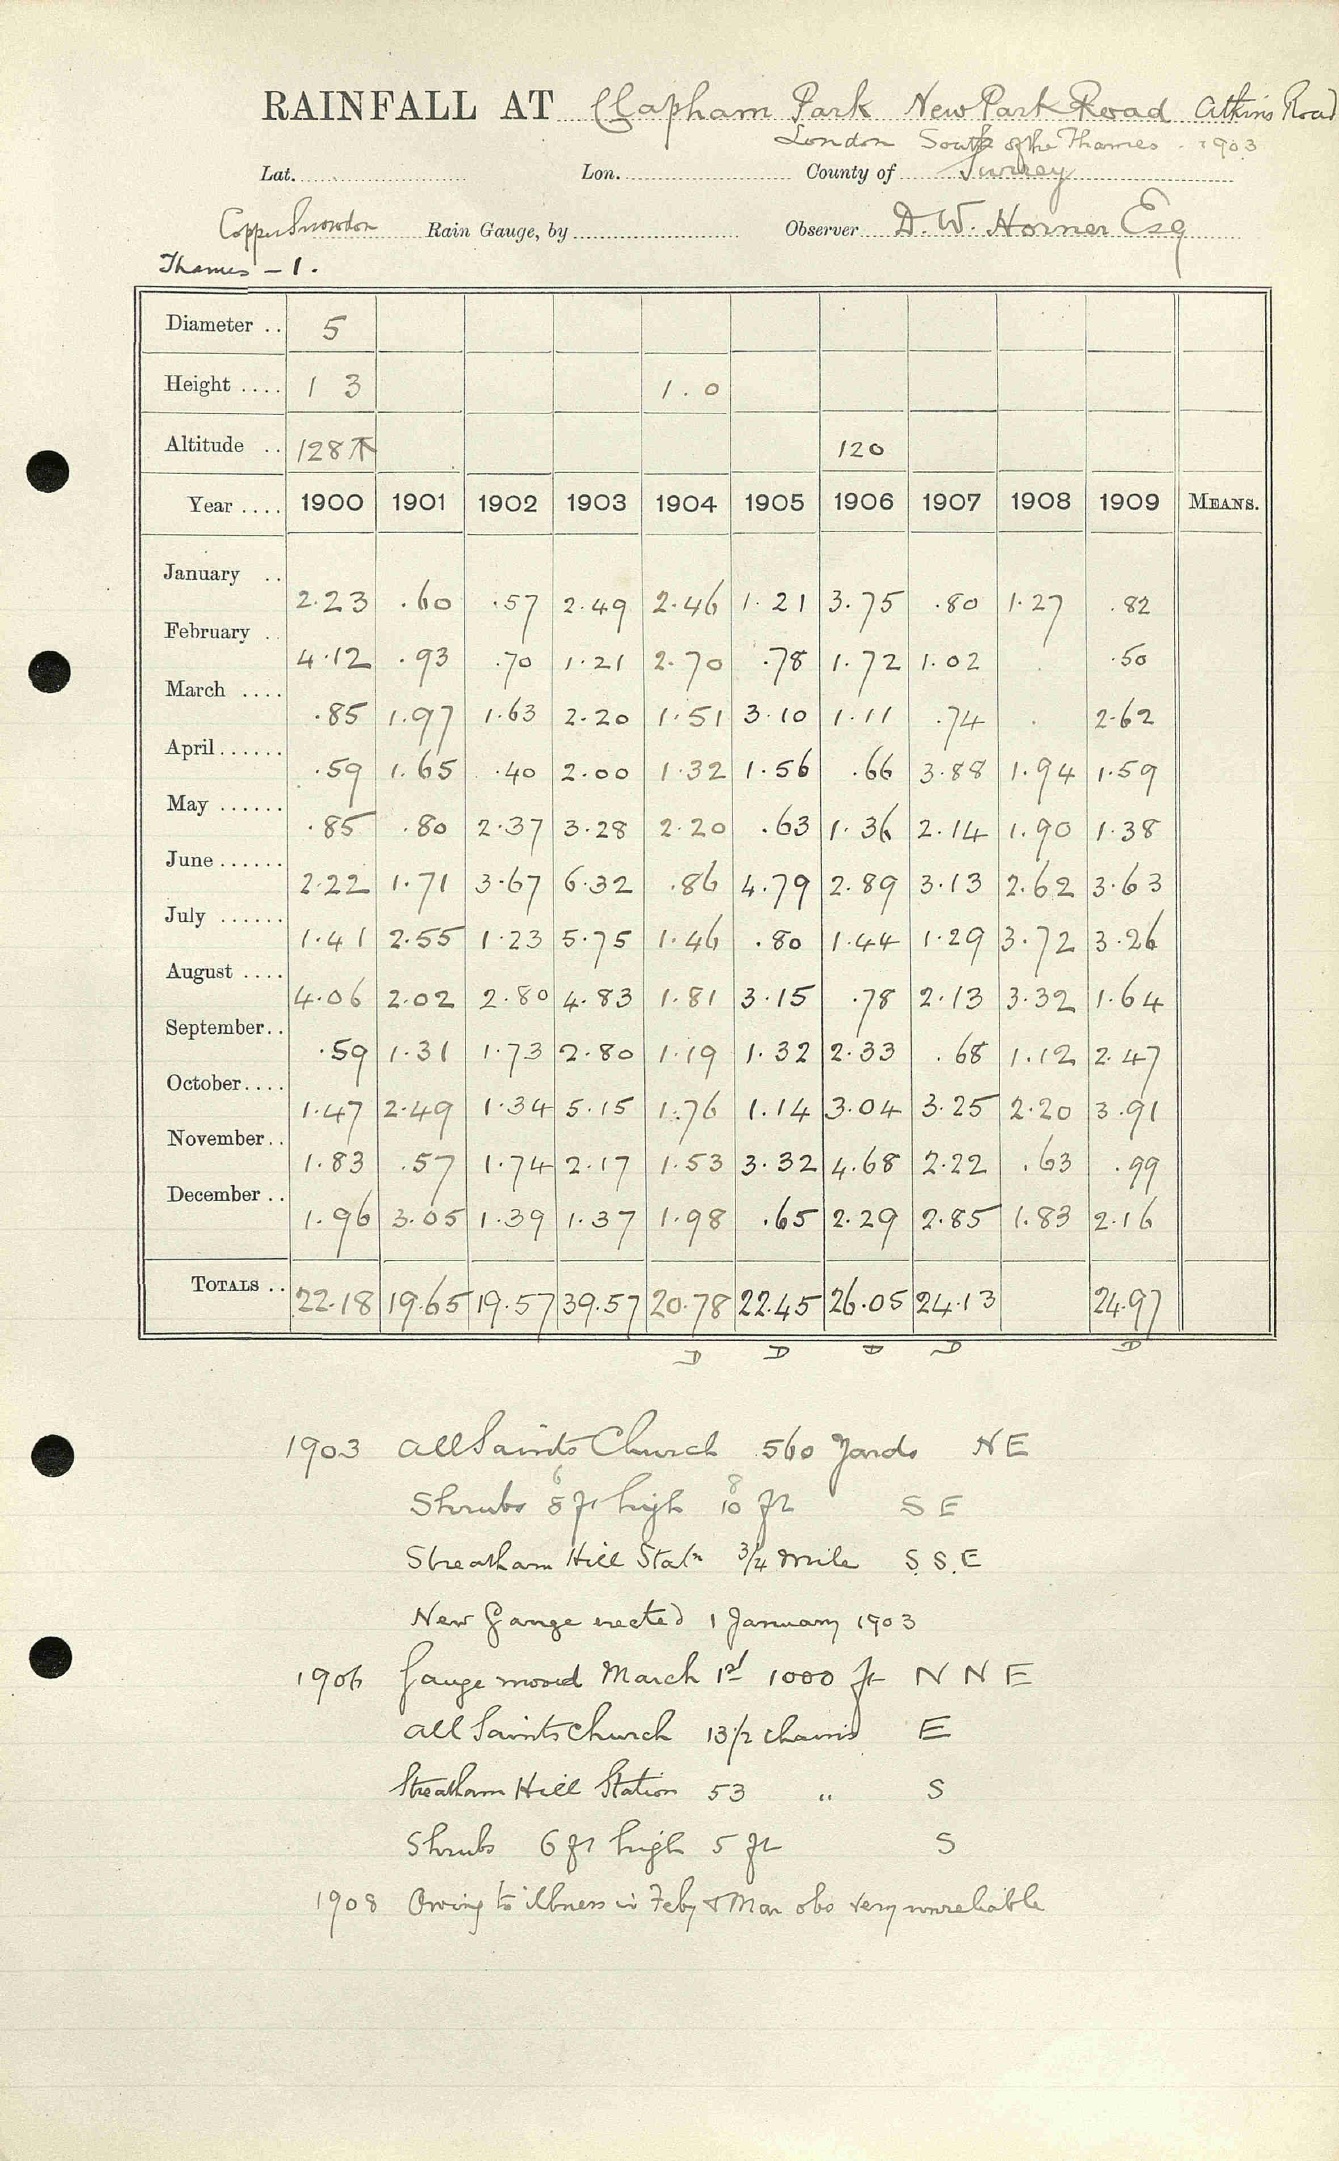 RAINFALL AT Clapham Park New Park Road Atkins Road
London South of the Thames . 1903
Lat. Lon. County of Surrey
Copper Snowdon Rain Gauge, by Observer D. W. Horner Esq
Thames – 1 .
Diameter .. 5
Height .... 1 3 1 . 0
Altitude .. 128 120
Year .... 1900 1901 1902 1903 1904 1905 1906 1907 1908 1909 MEANS.
January .. 2.23 .60 .57 2.49 2.46 1.21 3.75 .80 1.27 .82
February .. 4.12 .93 .70 1.21 2.70 .78 1.72 1.02 . .50
March .... .85 1.97 1.63 2.20 1.51 3.10 1.11 .74 . 2.62
April ...... .59 1.65 .40 2.00 1.32 1.56 .66 3.88 1.94 1.59
May ...... .85 .80 2.37 3.28 2.20 .63 1.36 2.14 1.90 1.38
June ...... 2.22 1.71 3.67 6.32 .86 4.79 2.89 3.13 2.62 3.63
July ...... 1.41 2.55 1.23 5.75 1.46 .80 1.44 1.29 3.72 3.26
August .... 4.06 2.02 2.80 4.83 1.81 3.15 .78 2.13 3.32 1.64
September .. .59 1.31 1.73 2.80 1.19 1.32 2.33 .68 1.12 2.47
October .... 1.47 2.49 1.34 5.15 1.76 1.14 3.04 3.25 2.20 3.91
November .. 1.83 .57 1.74 2.17 1.53 3.32 4.68 2.22 .63 .99
December .. 1.96 3.05 1.39 1.37 1.98 .65 2.29 2.85 1.83 2.16
TOTALS .. 22.18 19.65 19.57 39.57 20.78 22.45 26.05 24.13 24.97
D D D D D
1903 All Saints Church 560 Yards NE
6 8
Shrubs 5 ft high 10 ft S E
Streatham Hill Statn 3/4 mile S.S.E
New Gauge erected 1 January 1903
1906 Gauge moved March 1st 1000 ft N N E
All Saints Church 13 1/2 chains E
Streatham Hill Station 53 " S
Shrubs 6 ft high 5 ft S
1908 Owing to illness in Feby & Mar obs very unreliable